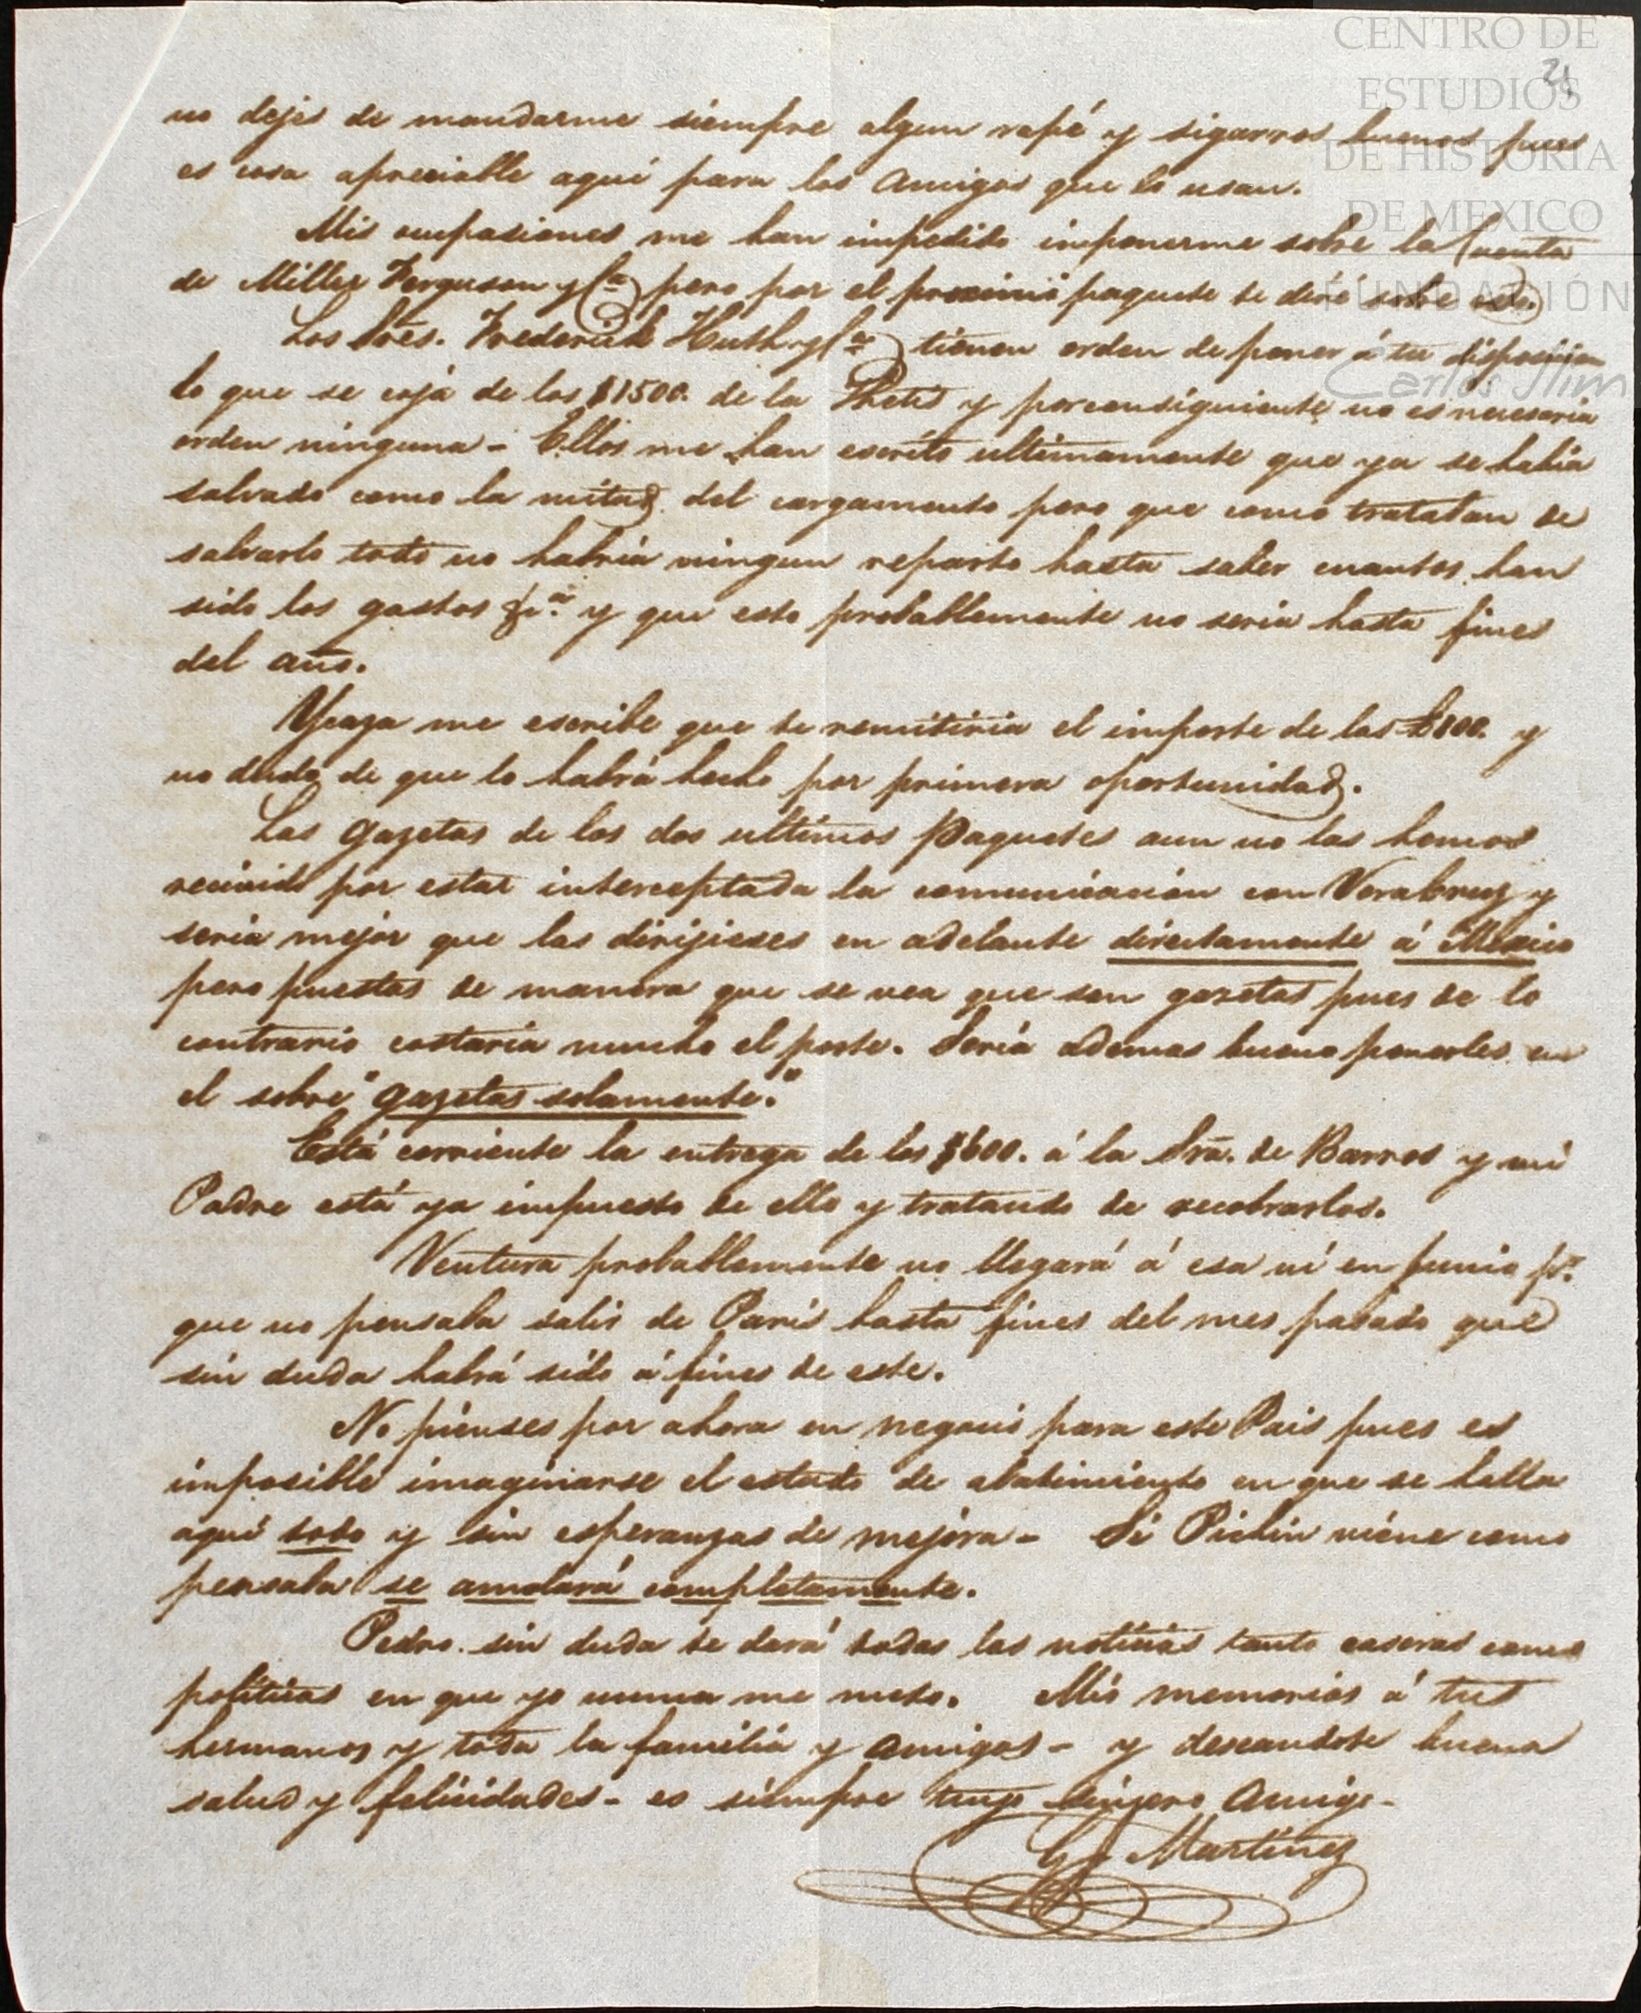 CENTRO DE
ESTUDIOS
DE HISTORIA
DE MEXICO
FUNDACIÓN
Carlos Slim
21
no dejes de mandarme siempre algun rapé y sigarros buenos pues
es cosa apreciable aquí para los Amigos que lo usan.
Mis ocupasiones me han impedido imponerme sobre la Cuenta
de Miller Ferguson y Cª pero por el proximo paquete te diré sobre eso.
Los Sres. Frederick Huth y Cª tienen orden de poner á tu disposicion
lo que se cojá de los $1500. de la Thetis y porconsiguiente no es necesaria
orden ninguna - Ellos me han escrito ultimamente que ya se habia
salvado como la mitad del cargamento pero que como trataban de
salvarlo todo no habria ningun reparto hasta saber cuantos han
sido los gastos &cª. y que esto probablemente no seria hasta fines
del año.
Ycaza me escribe que te remitiria el importe de las £100. y
no dudo de que lo habrá hecho por primera oportunidad.
Las gazetas de los dos ultimos Paquetes aun no las hemos
recivido por estar interceptada la comunicación con VeraCruz y
seria mejor que las dirijieses en adelante directamente á Mexico
pero puestas de manera que se vea que son gazetas pues de lo
contrario costaria mucho el porte. Seria ademas bueno ponerles en
el sobre "gazetas solamente."
Está corriente la entrega de los $600. á la Sra. de Barros y mi
Padre está ya impuesto de ello y tratando de recobrarlos.
Ventura probablemente no llegará á esa ni en Junio pr.
que no pensaba salir de Paris hasta fines del mes pasado que
sin duda habrá sido á fines de este.
No pienses por ahora en negocio para este Pais pues es
imposible imaginarse el estado de abatimiento en que se halla
aqui todo y sin esperanzas de mejora - Si Pichin viene como
pensaba se amolará completamente.
Pedro sin duda te dará todas las noticias tanto caseras como
politicas en que yo nunca me meto. Mis memorias á tus
hermanos y toda la familia y Amigos - y deseandote buena
salud y felicidades - es siempre tuyo sinsero Amigo -
Martinez